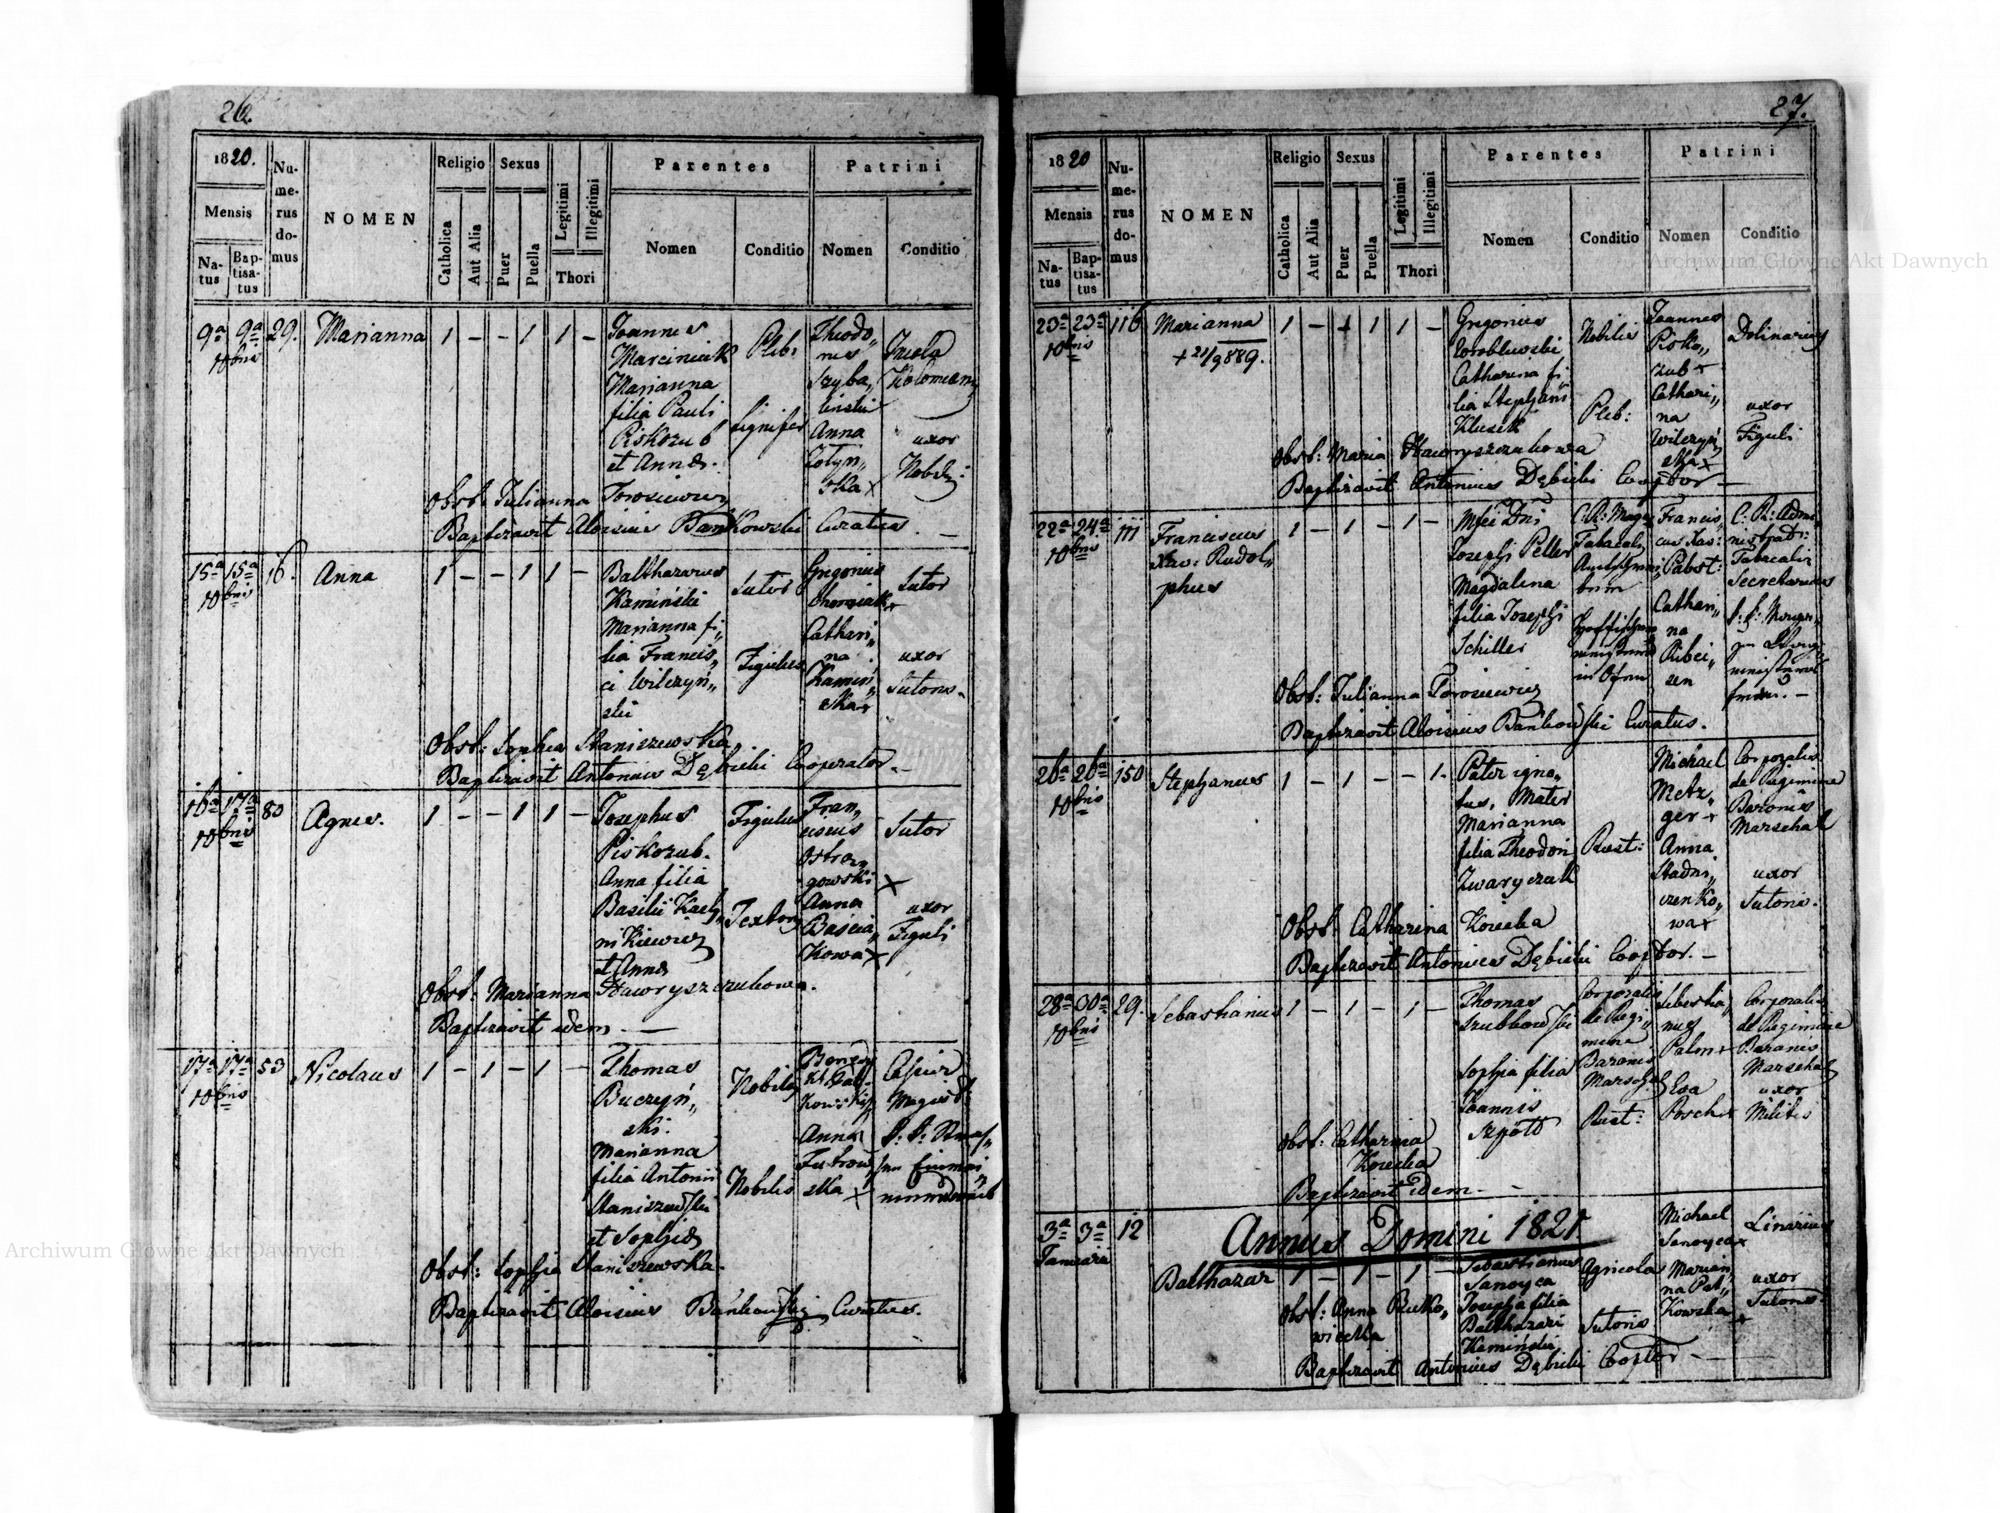 26.
1820.
Mensis
Na-
tus
Bap-
tisa-
tus
Nu-
me-
rus
do-
mus
NOMEN
Religio
Catholica
Aut Alia
Sexus
Puer
Puella
Legitimi
Illegitimi
Thori
Parentes
Nomen
Conditio
Patrini
Nomen
Conditio
9ª 9ª 29. Marianna 1 – – 1 1 –
10bris
Joannes
Marciniak
Marianna
filia Pauli
Piskozub
et Annæ.
Pleb:
Theodo„
rus
Szyba„
linski
Anna
Zolyn„
ska x
uxor
Nobil:
Obst: Julianna Torosiewicz
Baptizavit Aloisius Bańkowski Curatus. –
15ª 15ª 16. Anna 1 – – 1 1 –
10bris
Balthazarus
Kamiński
Marianna fi„
lia Francis„
ci Wilczyń„
ski
Sutor
Figulus
Gregorius
Cathari„
na
Kamiń„
ska x
Sutor
uxor
Sutoris.
Obst: Sophia Staniszewska
Baptizavit Antonius Dębicki Cooperator. –
16ª 17ª 80 Agnes. 1 – – 1 1 –
10bris
Josephus
Piskozub.
Anna filia
Basilii
et Annæ
Figulus
Textor
Fran„
ciscus
Ostro„
gowski x
Anna
Basiia„
kowa x
Sutor
uxor
Figuli
Obst: Marianna Hawryszczukowa.
Baptizavit idem. –
17ª 17ª 53 Nicolaus 1 – 1 – 1 –
10bris
Thomas
Buczyń„
ski.
Marianna
filia Antonii
Staniszewski
et Sophiæ
Nobilis
Nobilis
Anna
ska x
Obst: Sophia Staniszewska.
Baptizavit Aloisius Bańkowski Curatus.
27.
1820
Mensis
Na-
tus
Bap-
tisa-
tus
Nu-
me-
rus
do-
mus
NOMEN
Religio
Catholica
Aut Alia
Sexus
Puer
Puella
Legitimi
Illegitimi
Thori
Parentes
Nomen
Conditio
Patrini
Nomen
Conditio
23ª 23ª 116 Marianna 1 – 1 1 –
10bris
+ 21/9 889.
Gregorius
Wroblewski
Catharina fi„
lia Stephani
Klusik
Nobilis
Pleb:
Joannes
Pisko„
zub x
Cathari„
na
Wilczyń„
ska x
Dolinarius
uxor
Figuli
Obst: Maria Hawryszczukowa
Baptizavit Antonius Dębicki Cooptor –
22ª 24ª 111 Franciscus 1 – 1 – 1 –
10bris
Xav: Rudol„
phus
Josephi Peller
Magdalena
filia Josephi
Schiller
Francis„
cus Xav:
Pabst:
Cathari„
na
Ribei„
sen
Secretarius
Obst: Julianna Torosiewicz
Baptizavit Aloisius Bańkowski Curatus.
26ª 26ª 150 Stephanus 1 – 1 – – 1.
10bris
Pater igno„
tus, Mater
Marianna
filia Theodori
Zwaryczak
Rust:
Michael
Metz„
ger x
Anna
Stadni„
czenko„
wa x
Corporalis
de Regimine
Baronis
Marschal
uxor
Sutoris.
Obst: Catharina Kowcka
Baptizavit Antonius Dębicki Cooptor. –
28ª 30ª 29. Sebastianus 1 – 1 – 1 –
10bris
Thomas
Szubkowski
Sophia filia
Joannis
Szpott
Corporalis
de Regi„
mine
Baronis
Marschal
Rust:
Sebastia„
nus
Palm x
Eva
Porch x
Corporalis
de Regimine
Baronis
Marschal
uxor
Militis
Obst: Catharina
Kowcka
Baptizavit idem. –
Annus Domini 1821
3ª 3ª 12
Januarii
Balthazar 1 – 1 – 1 –
Sebastianus
Sanoyca
Josepha filia
Balthazari
Kamiński
Agricola
Sutoris
Michael
Sanoyca x
Marian„
na Pet„
kowska x
Linarius
uxor
Sutoris.
Obst: Anna Rutko„
wiecka
Baptizavit Antonius Dębicki Cooptor –
Archiwum Główne Akt Dawnych
Archiwum Główne Akt Dawnych